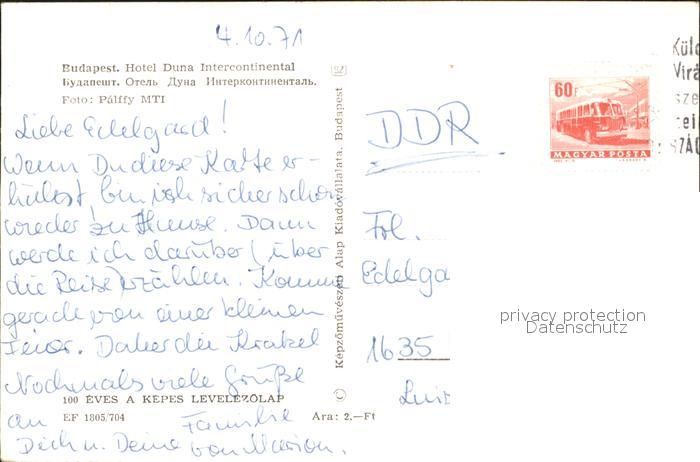 4.10.71
Budapest. Hotel Duna Intercontinental
Будапешт. Отель Дуна Интерконтиненталь.
Foto: Pálffy MTI
Liebe Edelgard!
Wenn Du diese Karte er-
hältst, bin ich sicher schon
wieder zu Hause. Dann
werde ich darüber (über
die Reise) erzählen. Komme
gerade von einer kleinen
Feier. Daher die Krakel
Nochmals viele Grüße
100 ÉVES A KÉPES LEVELEZŐLAP
an Familie
EF 1805/704 Ara: 2.—Ft
Dich u. Deine von Marion.
Képzőművészeti Alap Kiadóvállalata, Budapest
DDR
Frl.
Edelga
1635
Luis
60f
MAGYAR POSTA
Küld
Virá
sze
tel
SZÁG
privacy protection
Datenschutz